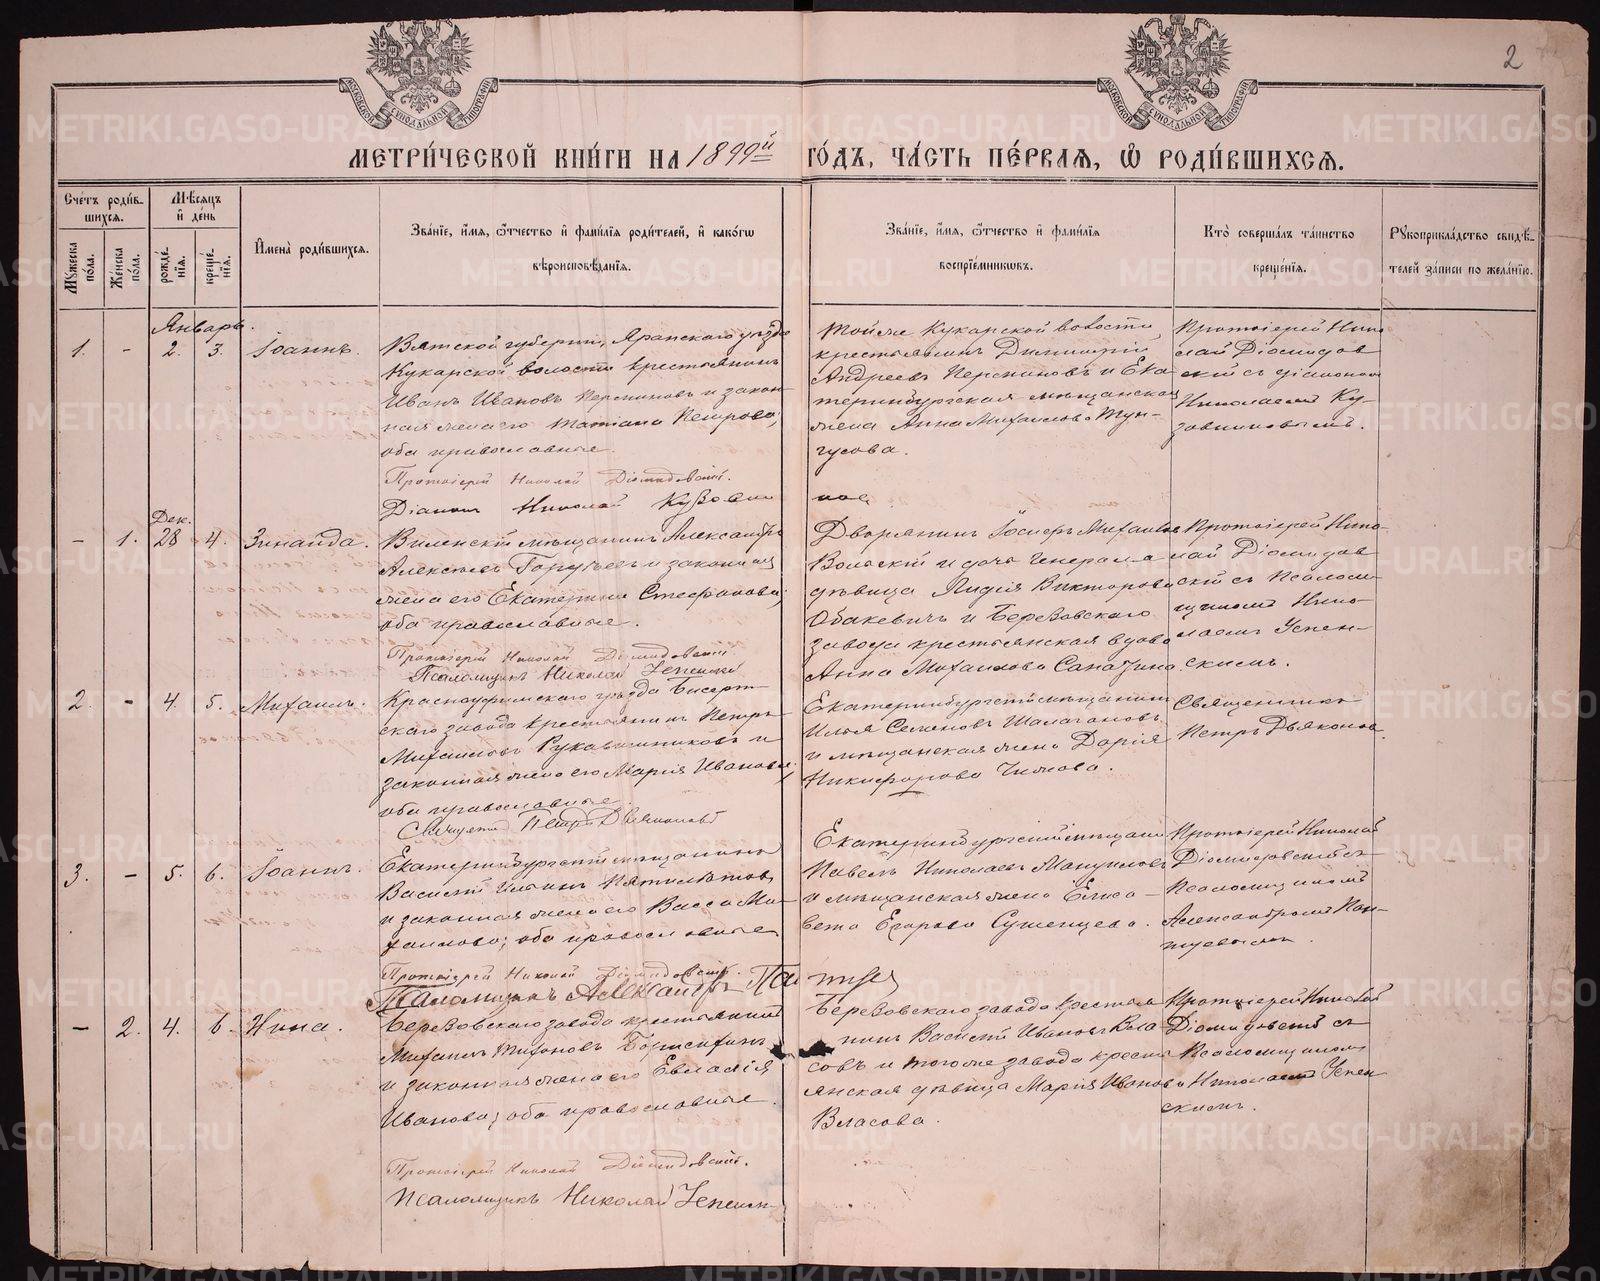 2
МОСКОВСКОЙ СѴНОДАЛЬНОЙ ТИПОГРАФІИ
МОСКОВСКОЙ СѴНОДАЛЬНОЙ ТИПОГРАФІИ
МЕТРИ́ЧЕСКОЙ КНИ́ГИ НА 1899й ГО́ДЪ, ЧА́СТЬ ПЕ́РВАѦ, Ѡ РОДИ́ВШИХСѦ.
Сче́тъ роди́в-
шихсѧ.
Мужеска по́ла.
Же́нска по́ла.
Мѣсѧцъ
и҆ де́нь
рожде́-
нїѧ.
креще́-
нїѧ.
И҆мена̀ роди́вшихсѧ.
Зва́нїе, и҆́мѧ, ѻ҆́тчество и҆ фами́лїѧ роди́телей, и҆ како́гѡ
вѣроисповѣ́данїѧ.
Зва́нїе, и҆́мѧ, ѻ҆́тчество и҆ фами́лїѧ
воспрїе́мниковъ.
Кто̀ соверша́лъ та́инство
креще́нїѧ.
Рукоприкла́дство свидѣ́-
телей за́писи по жела́нїю.
Январь.
1. - 2. 3. Іоаннъ.
Вятской губерніи, Яранскаго уѣзда
Кукарской волости крестьянинъ
Иванъ Ивановъ Перминовъ и закон-
ная жена его Татіана Петрова,
оба православные.
Протоіерей Николай Діомидовскій.
Діаконъ Николай Кузовни
ковъ
Той же Кукарской волости
крестьянинъ Димитрій
Андреевъ Перминовъ и Ека-
теринбургская мѣщанская
жена Анна Михаилова Тун-
гусова.
Протоіерей Нико
лай Діомидов
скій съ діакономъ
Николаемъ Ку-
зовниковымъ.
Дек.
- 1. 28 4. Зинаида.
Виленскій мѣщанинъ Александръ
Алексѣевъ и законная
жена его Екатерина Стефанова;
оба православные.
Протоіерей Николай Діомидовскій
Псаломщикъ Николай Успенскій
Дворянинъ Іосифъ Михаиловъ
Вольскій и дочь Генерала
дѣвица Лидія Викторова
и Березовскаго
завода крестьянская вдова
Анна Михаилова
Протоіерей Нико-
лай Діомидов
скій съ Псалом-
щикомъ Нико-
лаемъ Успен-
скимъ.
2. - 4. 5. Михаилъ.
Красноуфимскаго уѣзда Бисерт-
скаго завода крестьянинъ Петръ
Михаиловъ Рукавишниковъ и
законная жена его Марія Иванова
оба православные.
Священникъ Петръ Дьяконовъ
Екатеринбургскій мѣщанинъ
Илья Семеновъ
и мѣщанская жена Дарія
Никифорова
Священникъ
Петръ Дьяконовъ.
3. - 5. 6. Іоаннъ.
Екатеринбургскій мѣщанинъ
Василій Ильинъ Пятилѣтовъ
и законная жена его Васса Ми-
хаилова; оба православные
Протоіерей Николай Діомидовскій.
Псаломщикъ Александръ Па
Екатеринбургскій мѣщанинъ
Павелъ Николаевъ
и мѣщанская жена Елиса-
вета Егорова Сушенцева.
Протоіерей Николай
Діомидовскій съ
Псаломщикомъ
Александромъ
- 2. 4. 6. Нина.
Березовскаго завода крестьянинъ
Михаилъ Тихоновъ
и законная жена его Евлалія
Иванова; оба православные.
Протоіерей Николай Діомидовскій.
Псаломщикъ Николай Успенск
Березовскаго завода крестья
нинъ Василій Ивановъ Вла-
совъ и того же завода кресть
янская дѣвица Марія Иванова
Власова.
Протоіерей Николай
Діомидовскій съ
Псаломщикомъ
Николаемъ Успен
скимъ.
METRIKI.GASO-URAL.RU